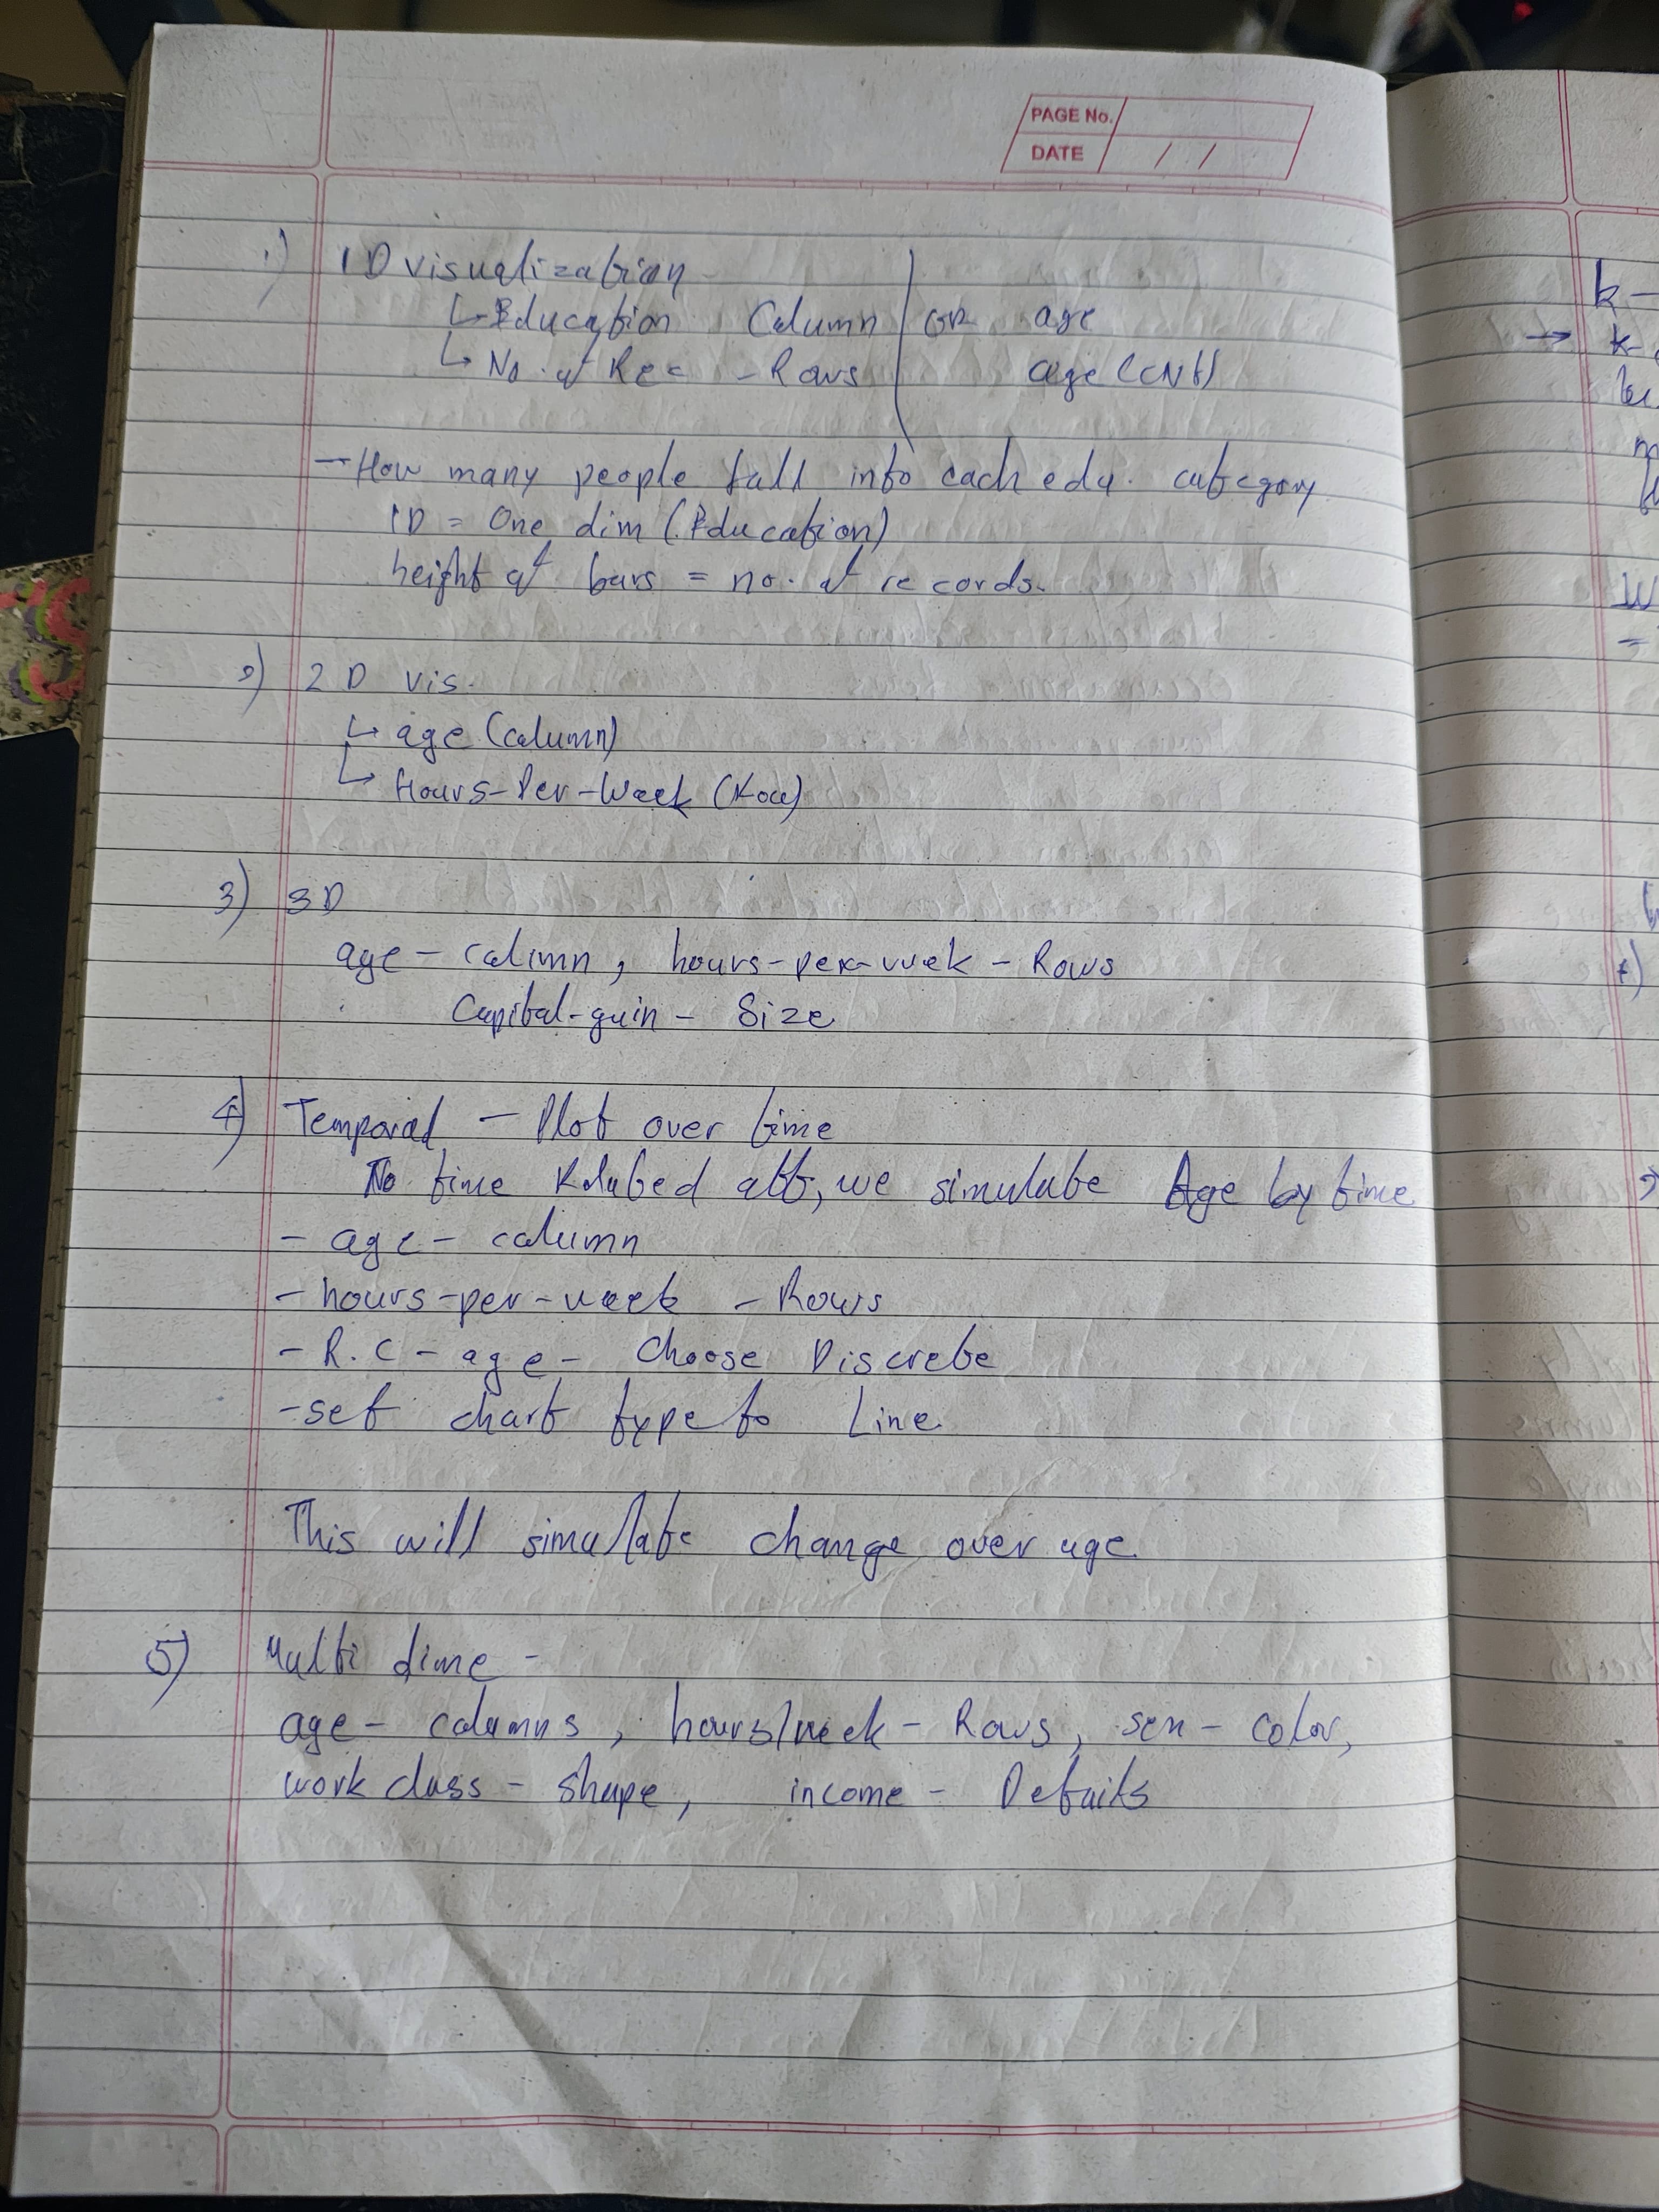 PAGE No.
DATE / /
1) 1D visualization
↳ Education Column | or age
↳ No. of Rec - Rows | age (cnt)
- How many people fall into each edu. category
1D = One dim (Education)
height of bars = no. of records.
2) 2D vis.
↳ age (column)
↳ Hours-Per-Week (Row)
3) 3D
age - column, hours-per-week - Rows
Capital-gain - Size
4) Temporal - Plot over time
No time Related att, we simulate Age by time
- age - column
- hours-per-week - Rows
- R.C - age - Choose Discrete
- set chart type to Line
This will simulate change over age
5) Multi dime -
age - columns, hours/week - Rows, sex - color,
work class - shape, income - Details
k -
→ k-